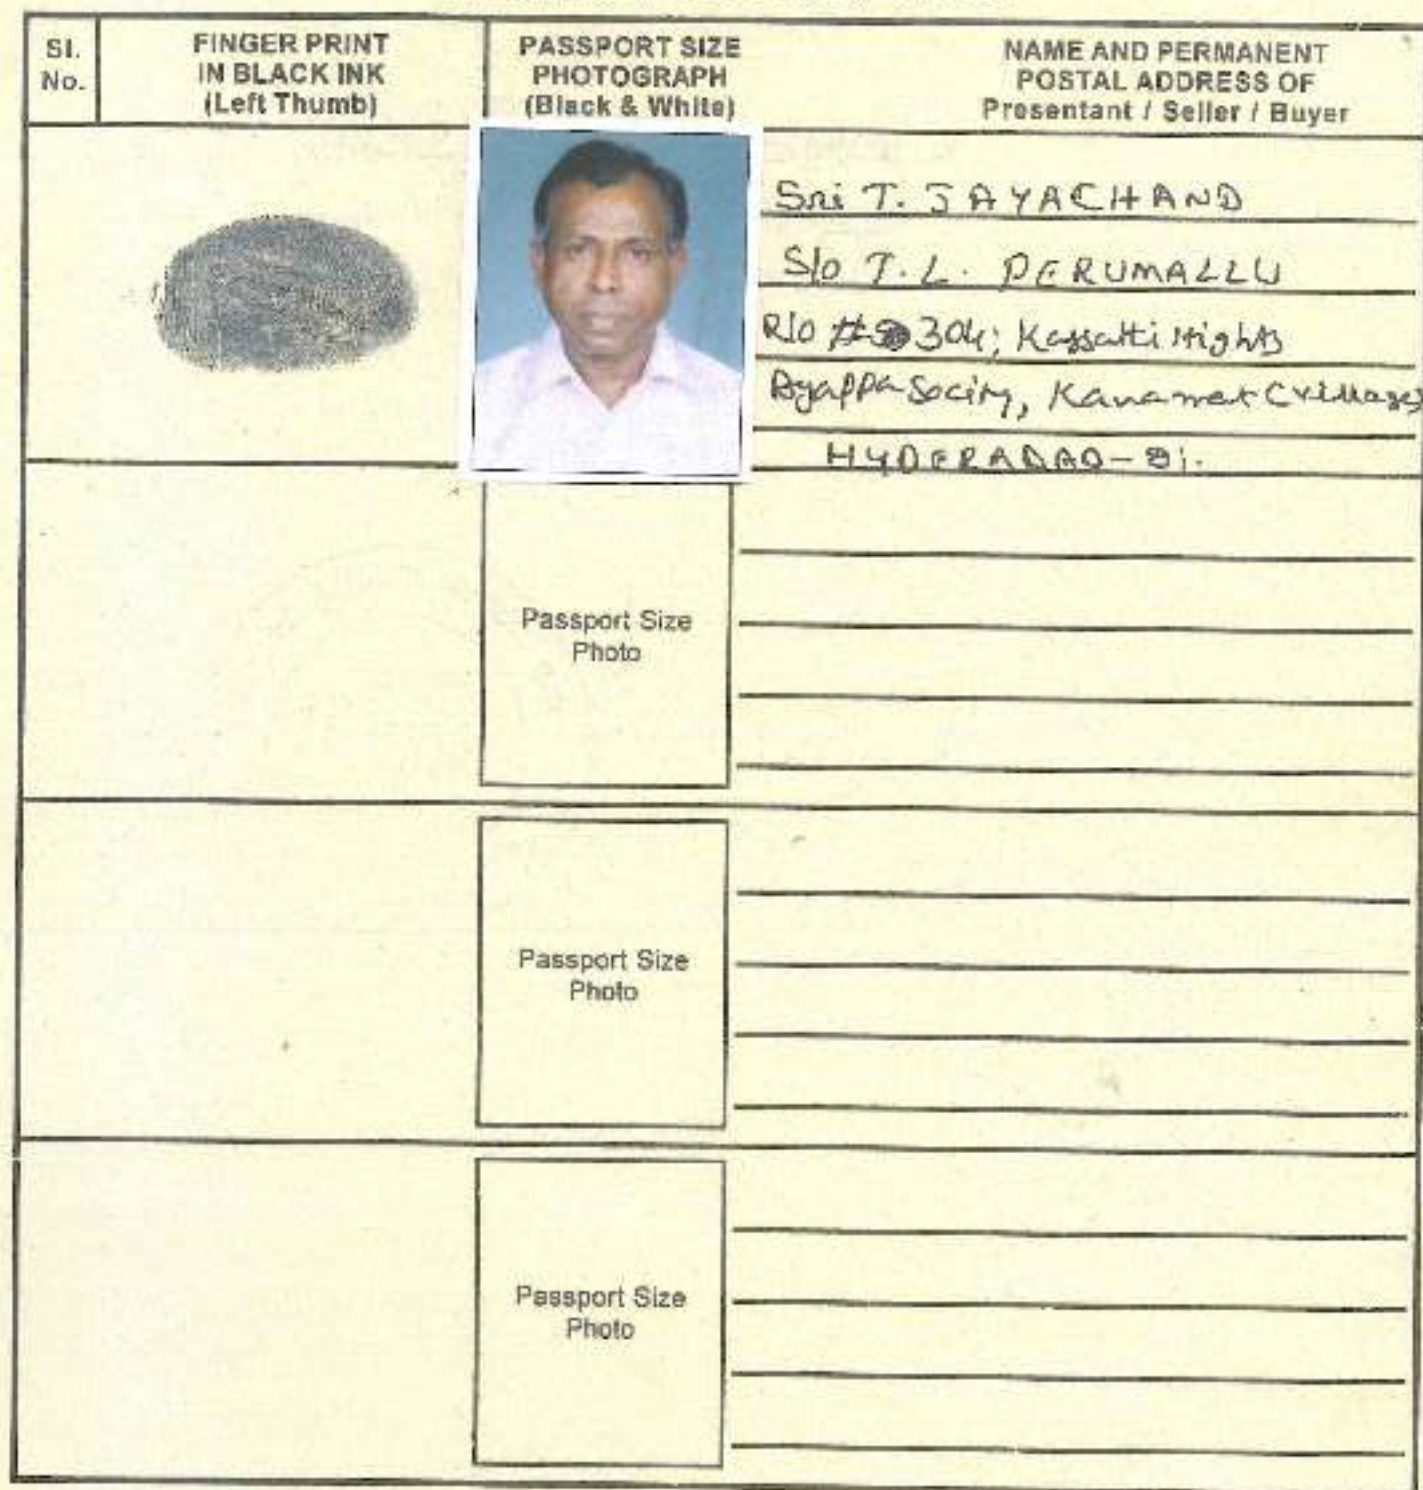 Sl.
No.
FINGER PRINT
IN BLACK INK
(Left Thumb)
PASSPORT SIZE
PHOTOGRAPH
(Black & White)
NAME AND PERMANENT
POSTAL ADDRESS OF
Presentant / Seller / Buyer
Sri T. JAYACHAND
S/o T.L. PERUMALLU
R/o # 304; Hights
Society, (village)
HYDERABAD - 81.
Passport Size
Photo
Passport Size
Photo
Passport Size
Photo